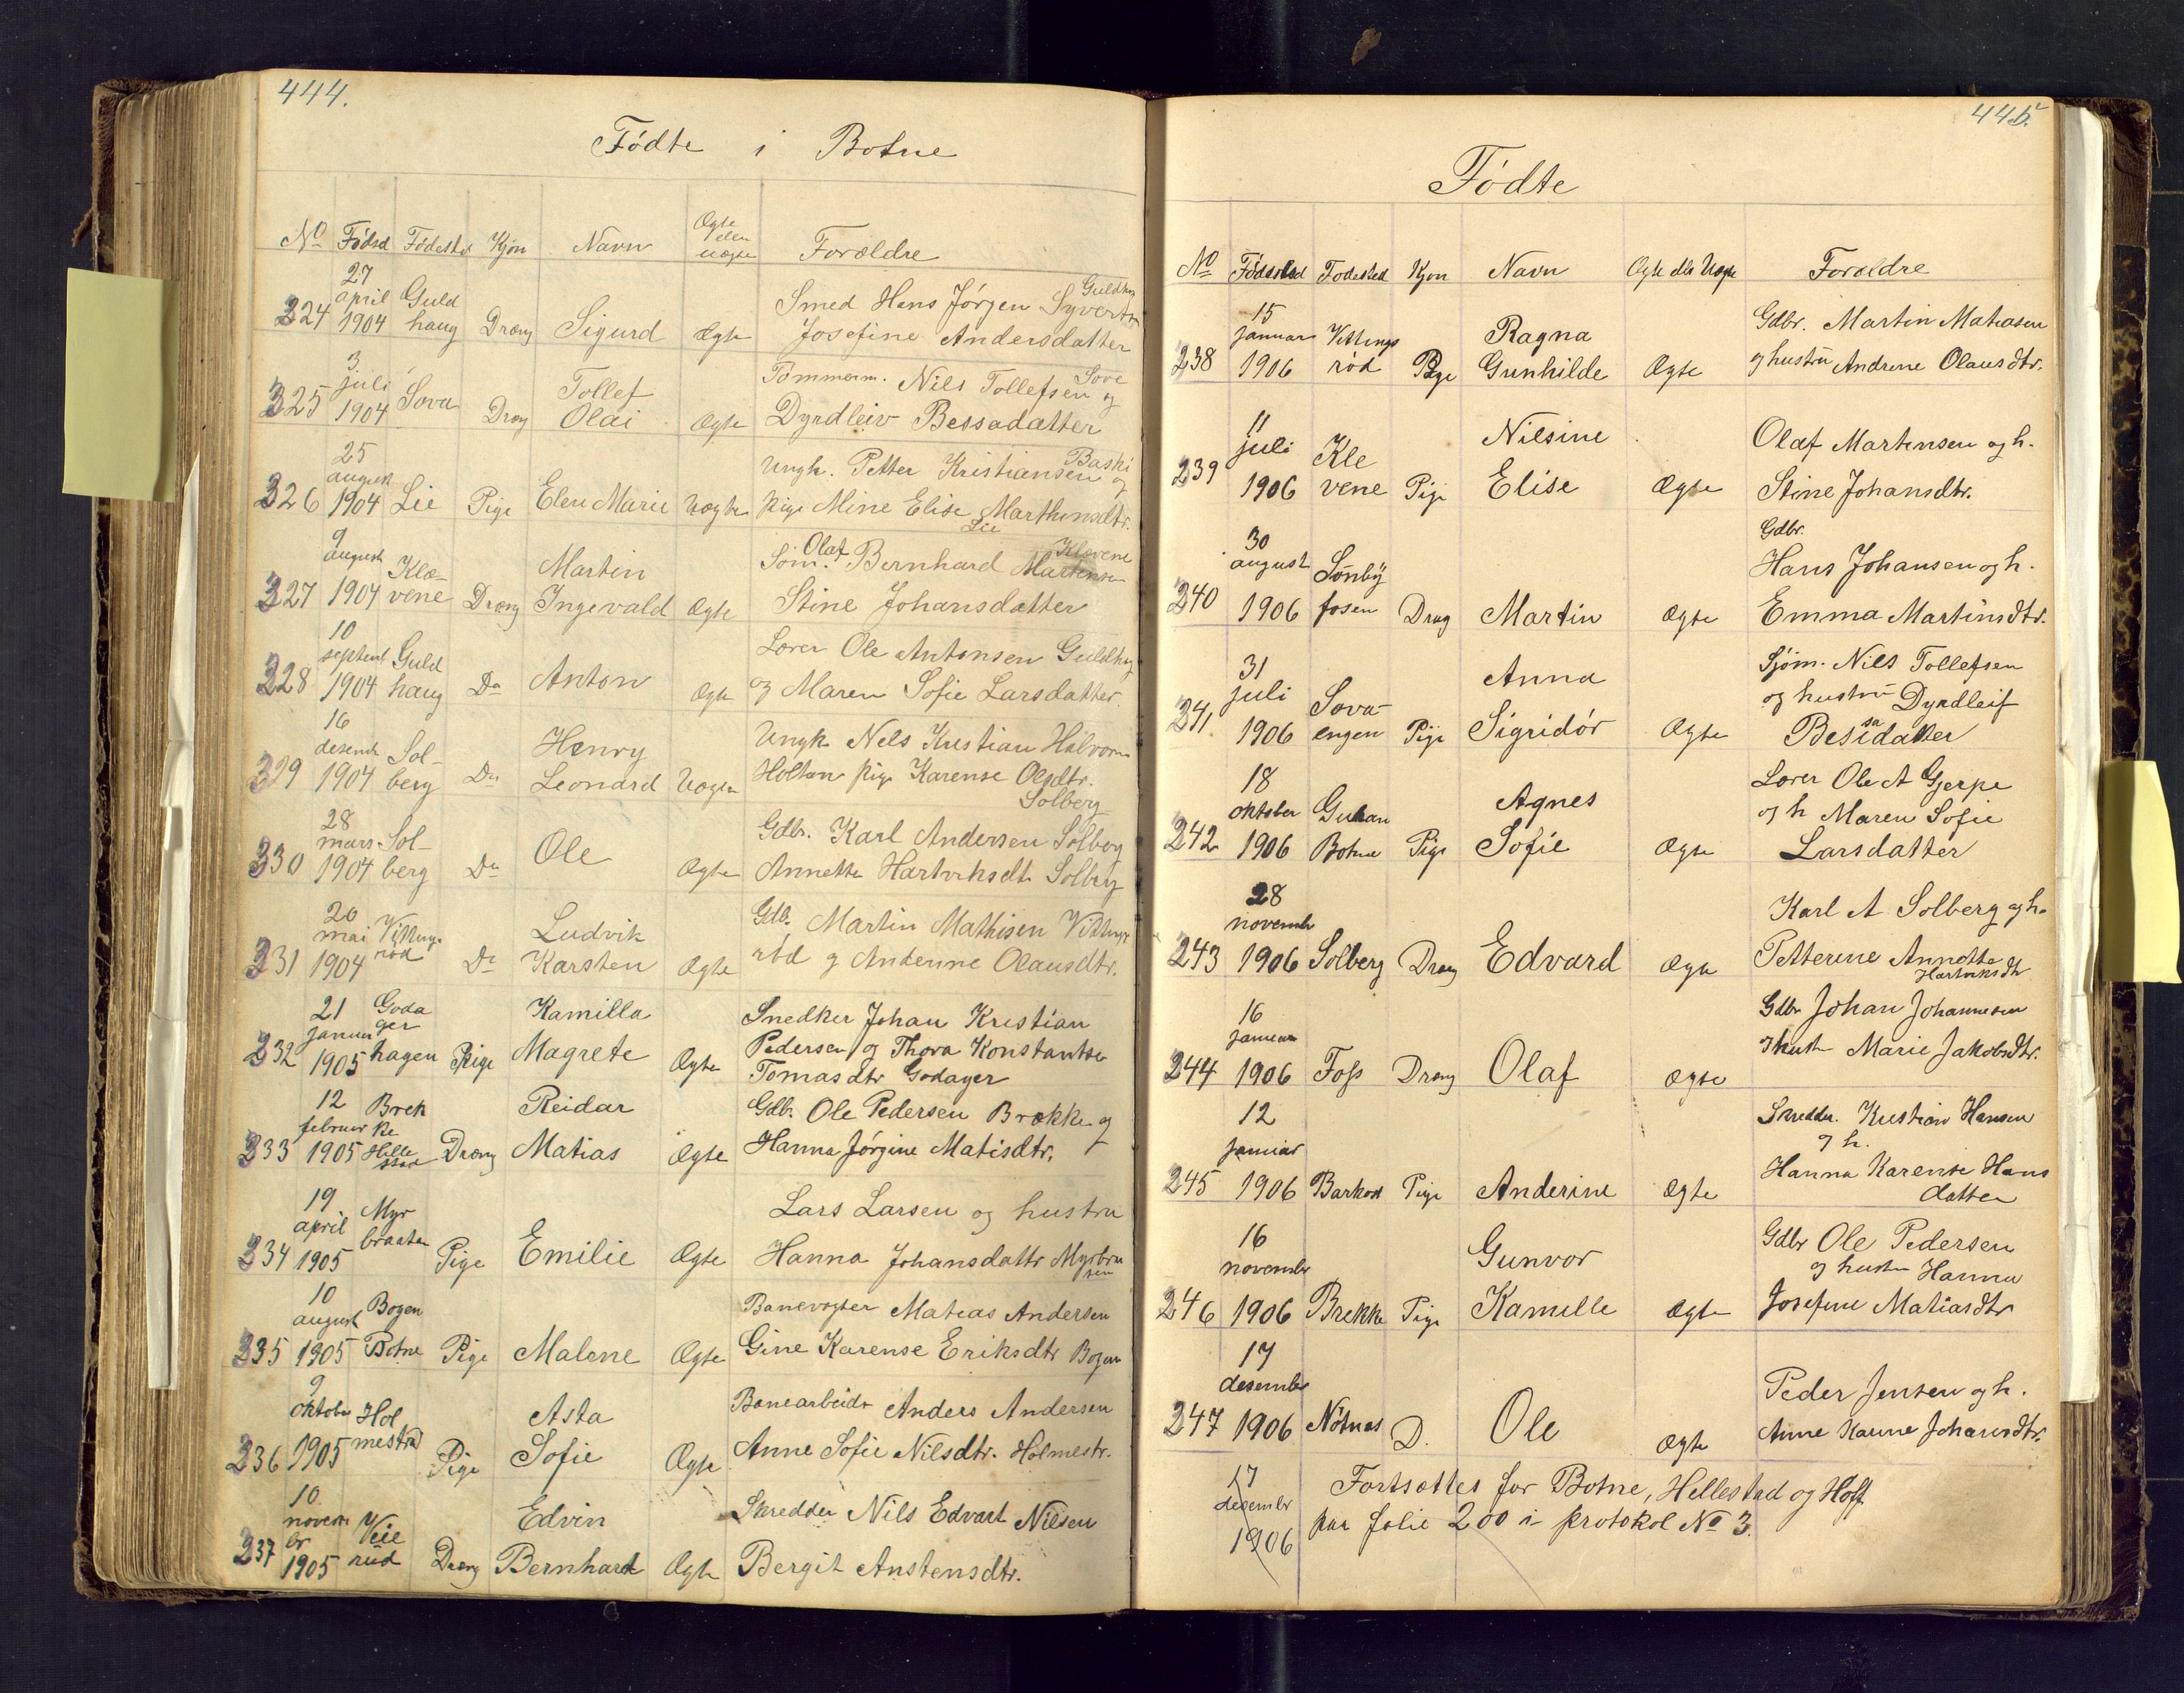 444.
Fødte i Botne
No Fødsd Fødested Kjøn Navn Ægte eller uægte Forældre
27 april 1904
224 Guldhaug Dreng Sigurd Ægte Smed Hans Jørgen Syverts Guldhaug
Josefine Andersdatter
3 juli 1904
225 Sova Dreng Tollef Olai Ægte Tømmerm. Nils Tollefsen Sove og
Dyrdleiv Bessadatter
25 august 1904
226 Lie Pige Elen Marie Uægte Ungk. Petter Kristiansen Baski og
pige Mine Elise Marthinsdtr. Lie
9 august 1904
227 Klævene Dreng Martin Ingevald Ægte Søm. Olaf Bernhard Martinsen Klævene
Stine Johansdatter
10 septemb 1904
228 Guldhaug Do Anton Ægte Lærer Ole Antonsen Guldhaug
og Maren Sofie Larsdatter.
16 desemb 1904
229 Solberg Do Henry Leonard Uægte Ungk Nels Kristian Halvorsen
Holtan pige Karense Olsdtr. Solberg
28 mars 1904
230 Solberg Do Ole Ægte Gdbr. Karl Andersen Solberg
Annette Hartviksdtr Solberg
20 mai 1904
231 Vittingsrød Do Ludvik Karsten Ægte Gdb. Martin Mathisen Vittings
rød og Anderine Olausdtr.
21 januar 1905
232 Godager hagen Pige Kamilla Magrete Ægte Snedker Johan Kristian
Pedersen og Thora Konstantse
Tomasdtr Godager
12 februar 1905
233 Brekke Hillestad Dreng Reidar Matias Ægte Gdb. Ole Pedersen Brække og
Hanna Jørgine Matisdtr.
19 april 1905
234 Myrbraaten Pige Emilie Ægte Lars Larsen og hustru
Hanna Johansdattr Myrbraaten
10 august 1905
235 Bogen Botne Pige Malene Ægte Banevogter Matias Andersen
Gine Karense Eriksdtr Bogen
9 oktober 1905
236 Holmestrd Pige Asta Sofie Ægte Banearbeidr Anders Andersen
Anne Sofie Nilsdtr. Holmestr.
10 novembr 1905
237 Veierud Dreng Edvin Bernhart Ægte Skredder Nils Edvart Nilsen
Bergit Anstensdtr.
445.
Fødte
No Fødested Kjøn Navn Ægte eller Uægte Forældre
15 januar 1906
238 Vittingsrød Pige Ragna Gunhilde Ægte Gdbr. Martin Matiasen
og hustru Andrine Olausdtr.
11 juli 1906
239 Klevene Pige Nilsine Elise Ægte Olaf Martinsen og h.
Stine Johansdtr.
30 august 1906
240 Sønbyfosen Dreng Martin Ægte Gdbr.
Hans Johansen og h.
Emma Martinsdtr.
31 juli 1906
241 Sovaengen Pige Anna Sigridør Ægte Sjøm. Nils Tollefsen
og hustru Dyrdleif
Bessadatter
18 oktober 1906
242 Botne Pige Agnes Sofie Ægte Lærer Ole A Gjerpe
og h Maren Sofie
Larsdatter
28 novembr 1906
243 Solberg Dreng Edvard Ægte Karl A Solberg og h.
Petterine Annette Hartviksdtr
16 januar 1906
244 Foss Dreng Olaf Ægte Gdbr Johan Johannesen
og hust Marie Jakobsdtr.
12 januar 1906
245 Barkost Pige Anderine Ægte Skredder. Kristian Hansen
og h.
Hanna Karense Hans
datter
16 novembr 1906
246 Brekke Pige Gunvor Kamille Ægte Gdbr Ole Pedersen
og hustr Hanna
Josefine Matiasdtr
17 desembr
247 1906 Nøtnes D. Ole Ægte Peder Jensen og h.
Anne Karine Johansdtr.
17 desembr 1906
Fortsættes for Botne, Hellestad og Hoff
paa folie 200 i protokol No 3.